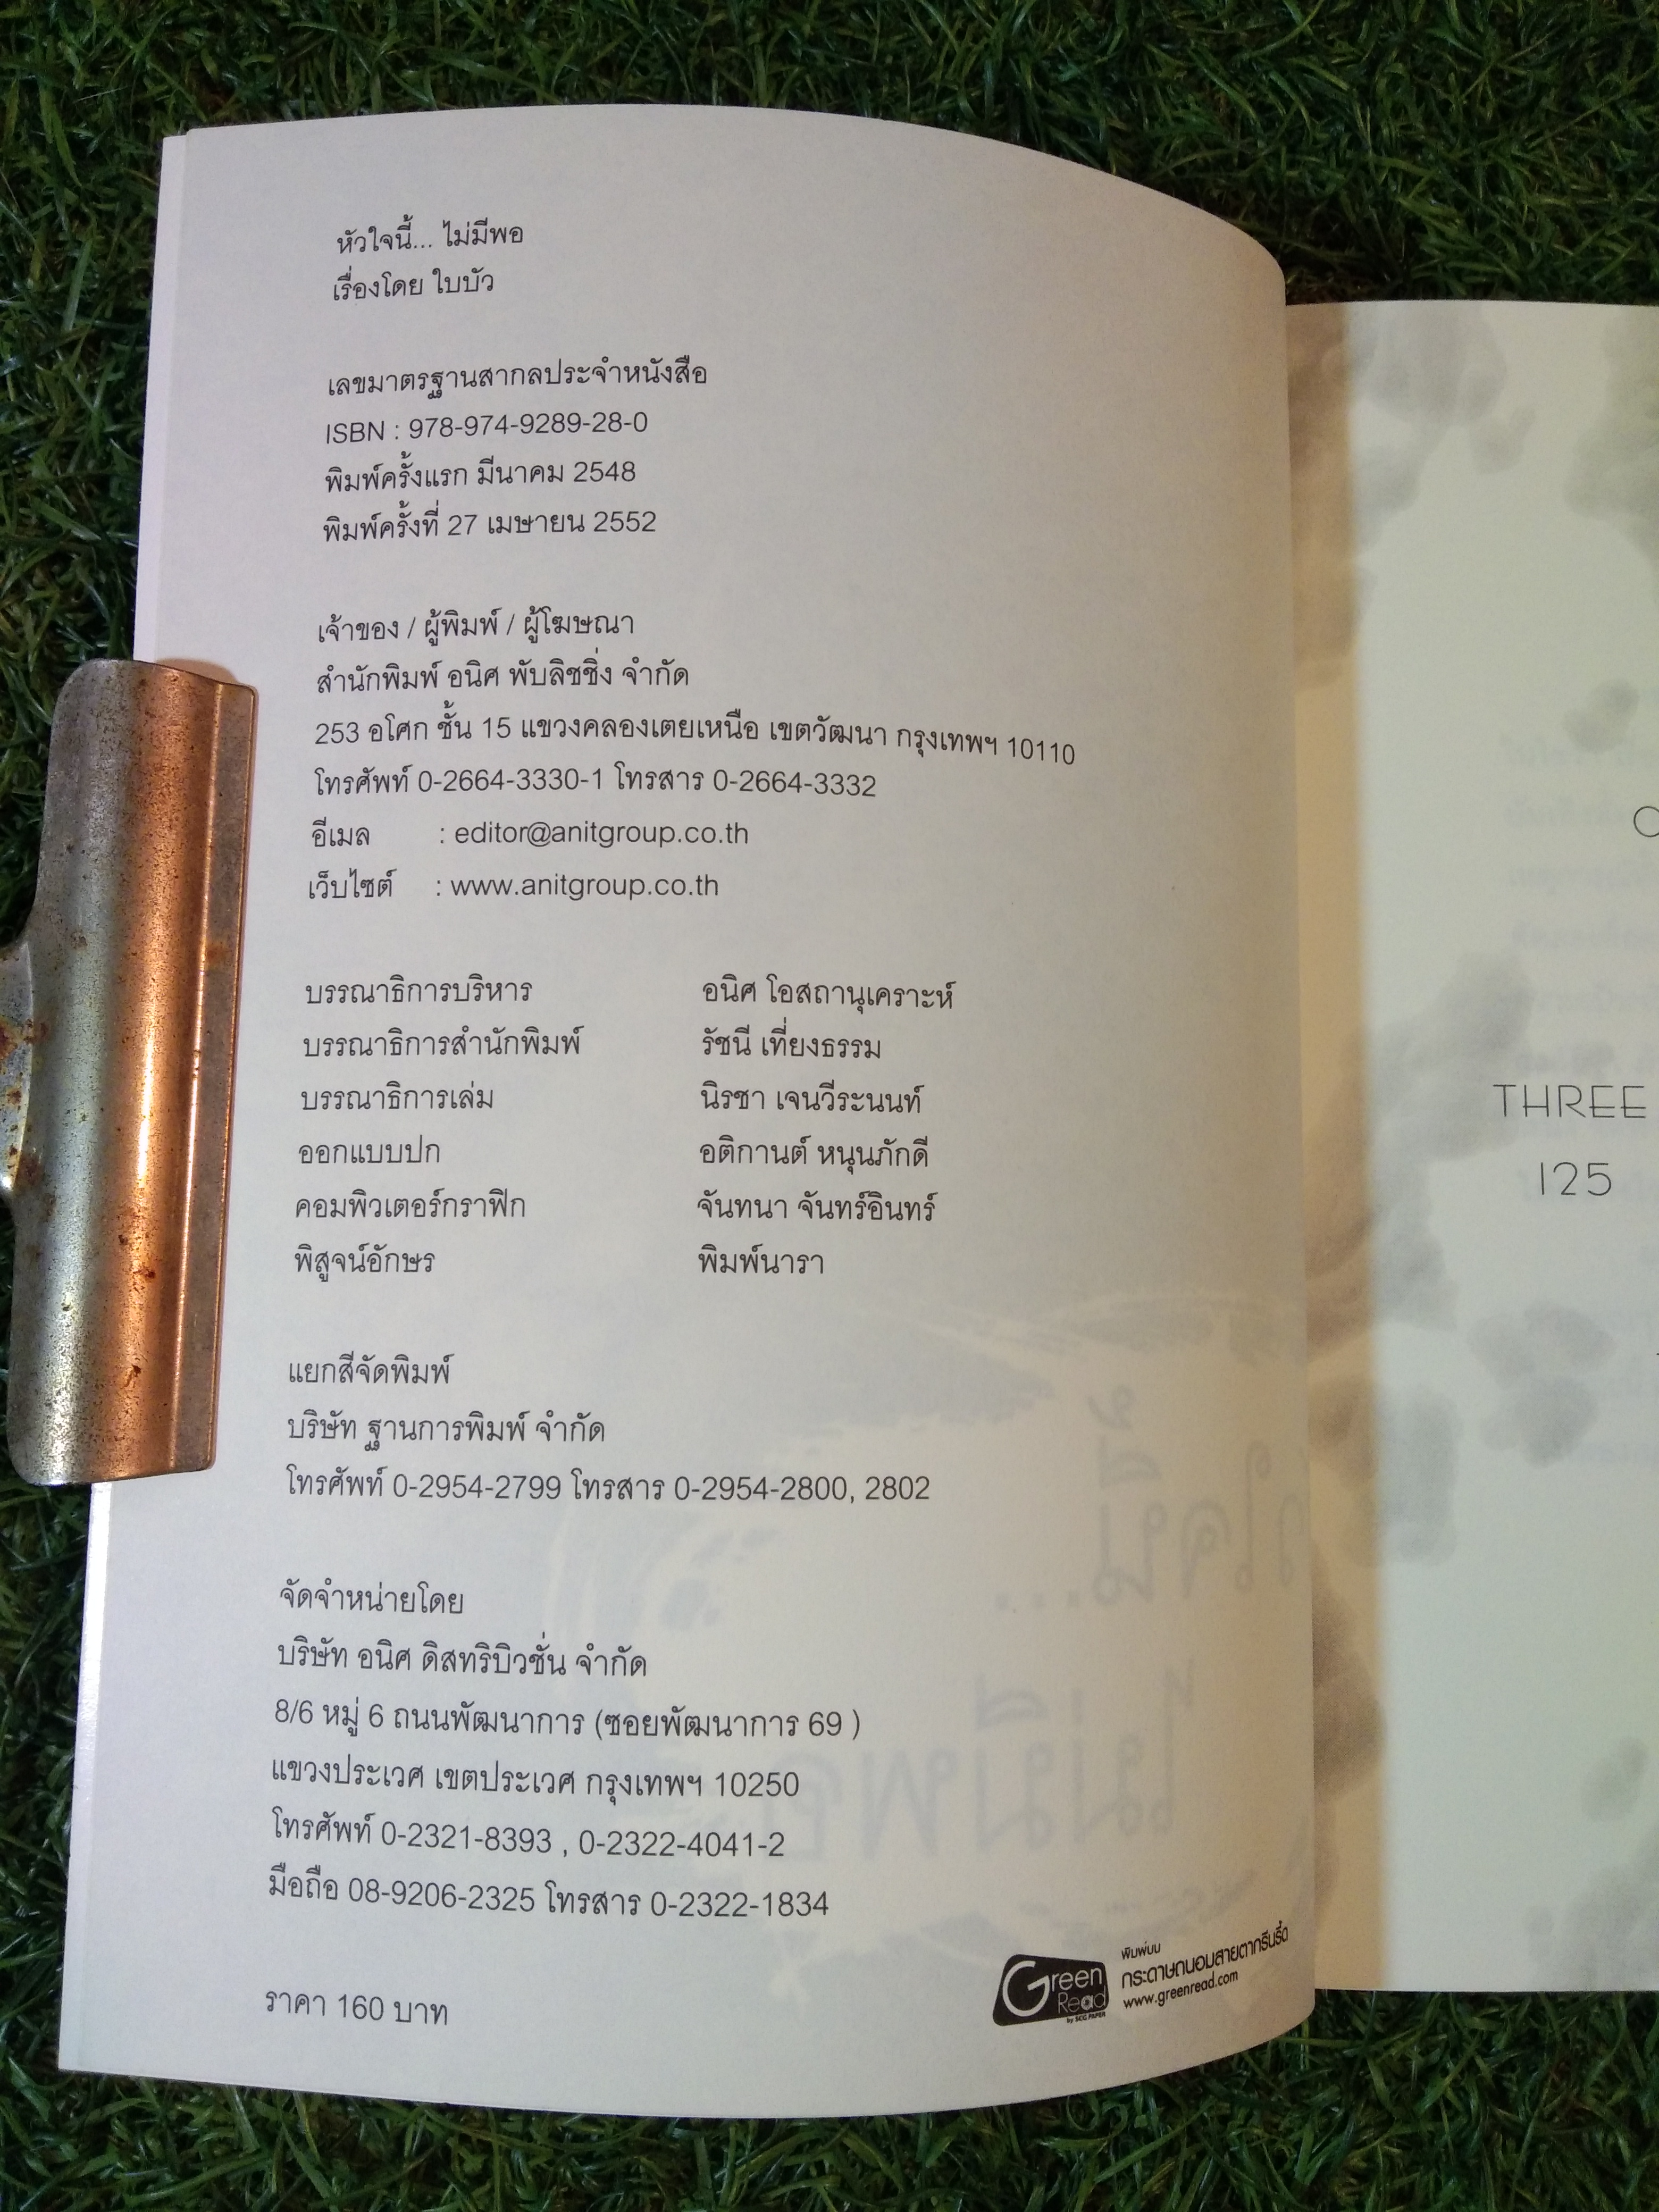 หัวใจนี้... ไม่มีพอ
เรื่องโดย ใบบัว
เลขมาตรฐานสากลประจำหนังสือ
ISBN : 978-974-9289-28-0
พิมพ์ครั้งแรก มีนาคม 2548
พิมพ์ครั้งที่ 27 เมษายน 2552
เจ้าของ / ผู้พิมพ์ / ผู้โฆษณา
สำนักพิมพ์ อนิศ พับลิชชิ่ง จำกัด
253 อโศก ชั้น 15 แขวงคลองเตยเหนือ เขตวัฒนา กรุงเทพฯ 10110
โทรศัพท์ 0-2664-3330-1 โทรสาร 0-2664-3332
อีเมล : editor@anitgroup.co.th
เว็บไซต์ : www.anitgroup.co.th
บรรณาธิการบริหาร อนิศ โอสถานุเคราะห์
บรรณาธิการสำนักพิมพ์ รัชนี เที่ยงธรรม
บรรณาธิการเล่ม นิรชา เจนวีระนนท์
ออกแบบปก อติกานต์ หนุนภักดี
คอมพิวเตอร์กราฟิก จันทนา จันทร์อินทร์
พิสูจน์อักษร พิมพ์นารา
แยกสีจัดพิมพ์
บริษัท ฐานการพิมพ์ จำกัด
โทรศัพท์ 0-2954-2799 โทรสาร 0-2954-2800, 2802
จัดจำหน่ายโดย
บริษัท อนิศ ดิสทริบิวชั่น จำกัด
8/6 หมู่ 6 ถนนพัฒนาการ (ซอยพัฒนาการ 69 )
แขวงประเวศ เขตประเวศ กรุงเทพฯ 10250
โทรศัพท์ 0-2321-8393 , 0-2322-4041-2
มือถือ 08-9206-2325 โทรสาร 0-2322-1834
ราคา 160 บาท
Green Read
by SCG PAPER
พิมพ์บน
กระดาษถนอมสายตากรีนรี้ด
www.greenread.com
THREE
125